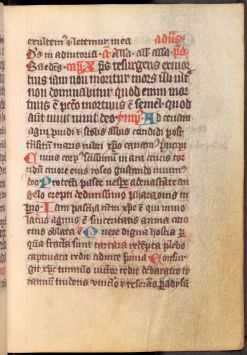 exultem et letemur in ea
Ds in adiutoriu a Alla all alla ps
Xps resurgens ex mor
tuis iam non moritur mors illi ult
non dominabitur quod enim mor
tuus e pcco mortuus e semel quod
aut uiuit uiuit deo ymps Ad cenam
agni puidi et stolis albis candidi post
maris rubri xpo canam principi
Cuius corp sctissimu in ara crucis tor
ridu cruore eius roseo gustando uiuim
deo Protecti pasce uespe a deuastate an
gelo erepti dedurissimo pharaonis im
pio Iam pascha nrm xps e qui immo
latus agnus e sinceritatis azima caro
eius oblata e O uere digna hostia p
qua fracta sunt tartara redepta plebs
captiuata reddit aduite pmia Consur
git xpc tumulo uictor redit debaratro ty
rannu trudens uinclo et reserans padysu